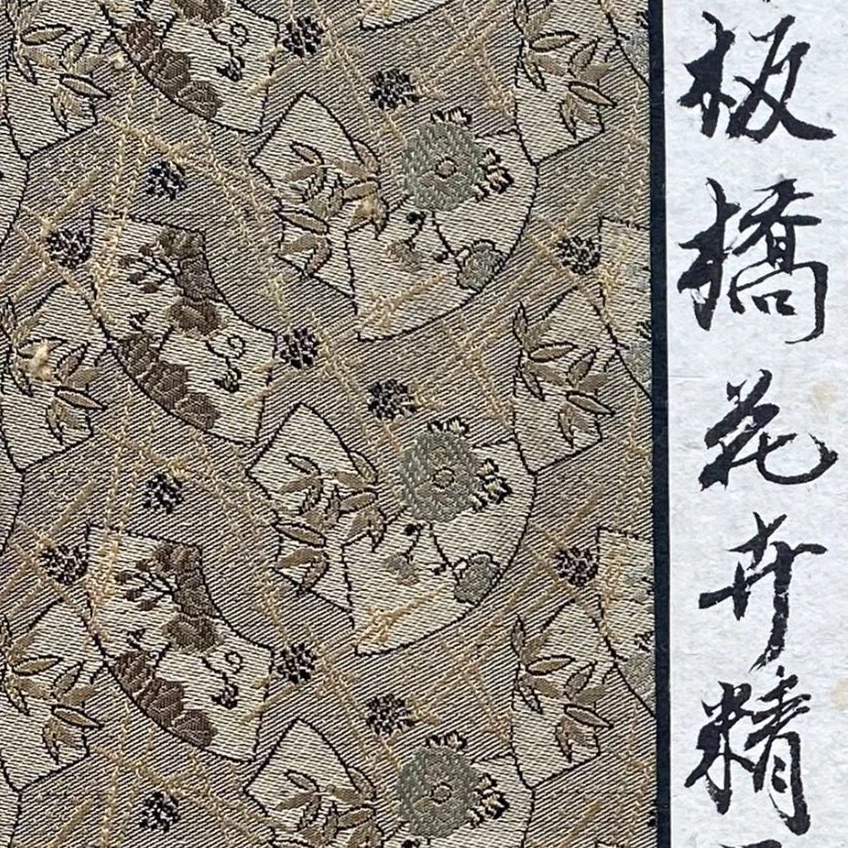 板橋花卉精